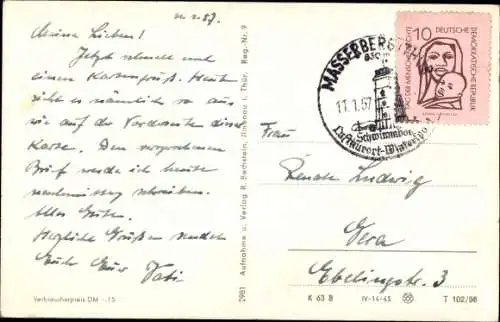 11.1.57.
Meine Lieben!
Jetzt schnell noch
einen Kartengruß. Heute
sieht es nämlich so aus
wie auf der Vorderseite dieser
Karte. Den versprochenen
Brief werde ich heute
nachmittag schreiben.
Alles Gute.
Herzliche Grüße sendet
Euch Euer Vati
Verbraucherpreis DM -.15
2981 Aufnahme u. Verlag R. Bechstein, Ilmenau i. Thür. Reg.-Nr. 9
MASSERBERG (THÜR)
11.1.57
Schwimmbad
Luftkurort-Wintersport
10
DEUTSCHE
DEMOKRATISCHE REPUBLIK
TAG DER MENSCHENRECHTE
Frau
Renate Ludwig
Gera
Ebelingstr. 3
K 63 B IV-14-45 T 102/56